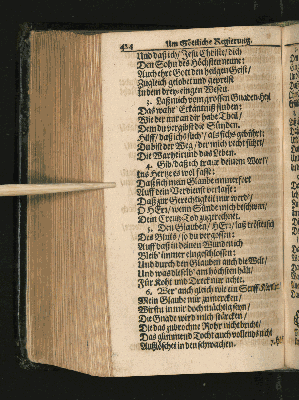 424 Um Göttliche Regierung.
Und daß ich / Jesu Christe / dich
Den Sohn des Höchsten nenne:
Auch ehre Gott den heilgen Geist /
Zugleich gelobet und gepreist
In dem drey-eingen Wesen.
3. Laß mich vom grossen Gnaden-Heyl
Das wahr' Erkäntniß finden /
Wie der nur an dir habe Theil /
Dem du vergibst die Sünden,
Hilff / daß ichs such / als sichs gebührt:
Du bist der Weg / der mich recht führt /
Die Warheit und das Leben.
4. Gib / daß ich traue deinem Wort /
Ins Hertze es wol fasse:
Daß sich mein Glaube immerfort
Auff dein Verdienst verlasse:
Daß zur Gerechtigkeit mir werd /
O HErr / wenn Sünde mich beschwert /
Dein Creutz-Tod zugerechnet.
5. Den Glauben / HErr / laß trösten sich
Des Bluts / so du vergossen:
Auff daß in deinen Wunden ich
Bleib' immer eingeschlossen:
Und durch den Glauben auch die Welt /
Und was dieselb' am höchsten hält /
Für Koht und Dreck nur achte.
6. Wer' auch gleich wie ein Senff-Körnlein
Mein Glaube nur zu mercken /
Wirstu in mir doch mächtig seyn /
Die Gnade wird mich stärcken /
Die das zubrochne Rohr nicht bricht /
Das glimmend Tocht auch vollends nicht
Außlöschet in den schwachen.